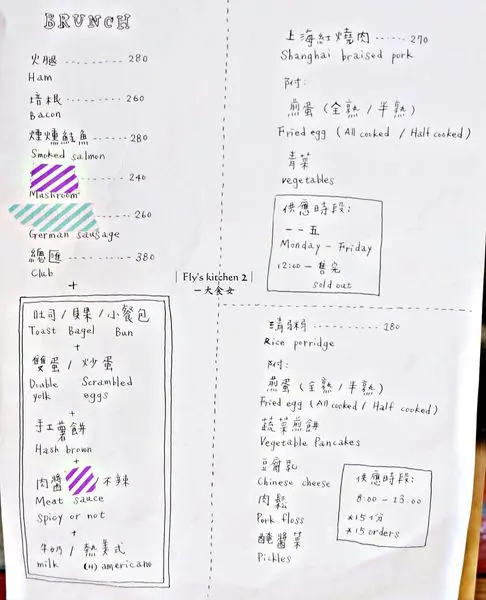 BRUNCH
火腿 ........... 280
Ham
培根 ........... 260
Bacon
煙燻鮭魚 ........ 280
Smoked salmon
..... 240
Mushroom
.... 260
German sausage
總匯 ........... 380
Club
+
吐司 / 貝果 / 小餐包
Toast Bagel Bun
+
雙蛋 / 炒蛋
Double yolk Scrambled eggs
+
手工薯餅
Hash brown
+
肉醬 / 不辣
Meat sauce
spicy or not
+
牛奶 / 熱美式
milk (H) americano
| Fly's kitchen 2 |
一大食女
上海紅燒肉 ...... 270
Shanghai braised pork
附:
煎蛋 (全熟 / 半熟)
Fried egg (All cooked / Half cooked)
青菜
vegetables
供應時段:
一 - 五
Monday - Friday
12:00 - 售完
sold out
........... 180
Rice porridge
附:
煎蛋 (全熟 / 半熟)
Fried egg (All cooked / Half cooked)
蔬菜煎餅
Vegetable Pancakes
豆腐乳
Chinese cheese
肉鬆
Pork floss
醃醬菜
Pickles
供應時段:
8:00 - 13:00
*15份
*15 orders